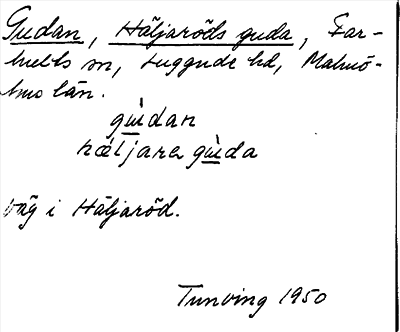 Gudan, Häljaröds guda, Far-
hults sn, Luggude hd, Malmö-
hus län.
gùdan
hæljarer gùda
väg i Häljaröd.
Tunving 1950